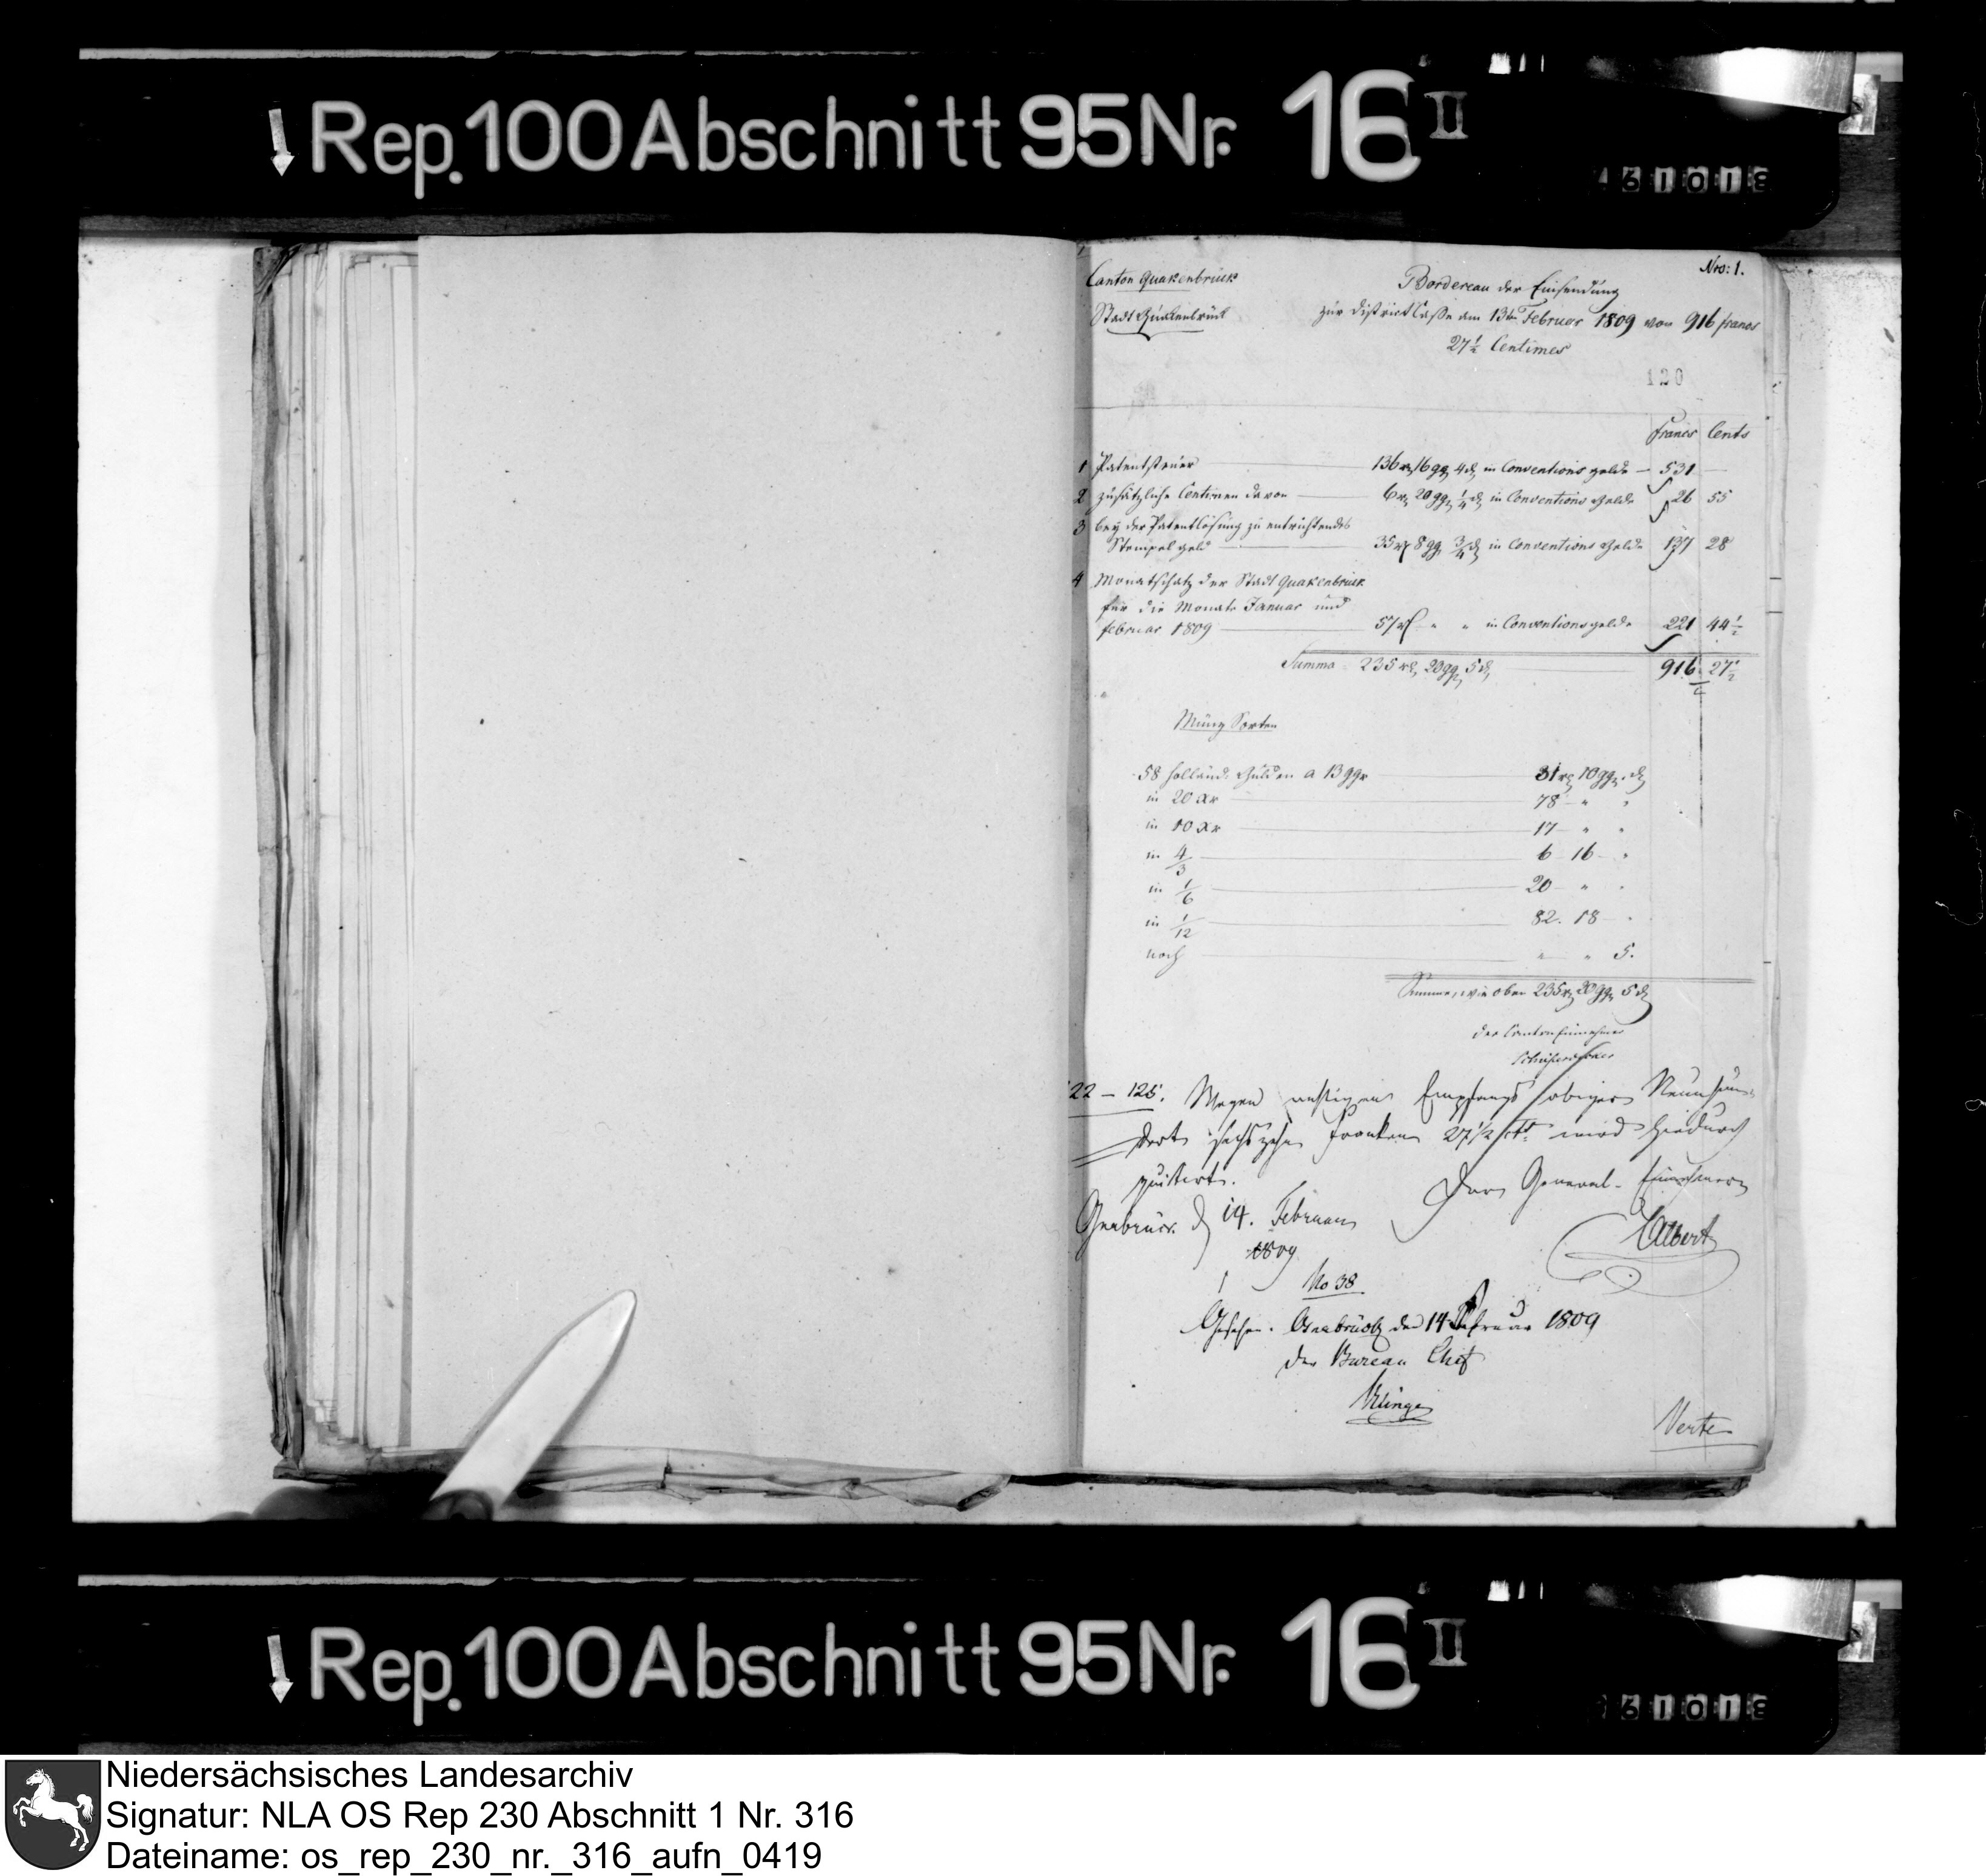 Rep. 100 Abschnitt 95 Nr. 16 II
61018
Nro: 1.
Canton Quakenbrück
Stadt Quakenbrück
Bordereau der Einsendung
zur DistrictCasse am 13ten Februar 1809 von 916 francs
27½ Centimes
120
francs Cents
1 Patentsteuer 136 rt 16 ggr 4 d in Conventionsgelde 531 —
2 zusätzliche Centimen davon 6 rt 20 ggr ¼ d in Conventions Gelde 26 55
3 bey der Patentlösung zu entrichtendes
Stempelgeld 35 rt 8 ggr ¾ d in Conventions Gelde 137 28
4 Monatschatz der Stadt Quakenbrück
für die Monate Januar und
februar 1809 57 rt " " in Conventionsgelde 221 44½
Summa 235 rt 20 ggr 5 d 916 27½
Münz Sorten
58 holländ. Gulden a 13 ggr 31 rt 10 ggr " d
in 20 Xr 78 " "
in 10 Xr 17 " "
in 4/3 6 16 "
in 1/6 20 " "
in 1/12 82. 18 "
noch " " 5.
Summa, wie oben 235 rt 20 ggr 5 d
der Cantoneinnehmer
22 – 125. Wegen richtigen Empfangs obiger Neunhun-
dert sechszehn Franken 27 1/2 Cts wird hiedurch
quitirt.
Der General-Einnehmer
Osnabrück d 14. Februar
1809
Albert
No 38
Gesehen. Osnabrück den 14 Februar 1809
der Bureau Chef
Klinge
Verte
Rep. 100 Abschnitt 95 Nr. 16 II
61018
Niedersächsisches Landesarchiv
Signatur: NLA OS Rep 230 Abschnitt 1 Nr. 316
Dateiname: os_rep_230_nr._316_aufn_0419